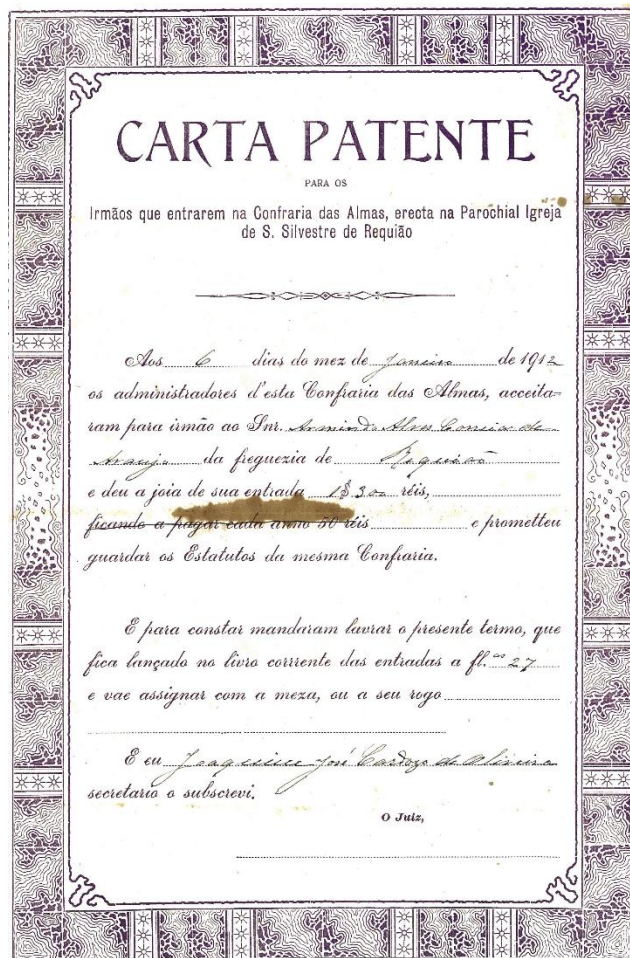 CARTA PATENTE
PARA OS
Irmãos que entrarem na Confraria das Almas, erecta na Parochial Igreja
de S. Silvestre de Requião
Aos 6 dias do mez de Janeiro de 1912
os administradores d'esta Confraria das Almas, acceita-
ram para irmão ao Snr. Armindo Alves Correia de
Araujo da freguezia de Requião
e deu a joia de sua entrada 1$300 réis,
ficando a pagar cada anno 50 réis e prometteu
guardar os Estatutos da mesma Confraria.
E para constar mandaram lavrar o presente termo, que
fica lançado no livro corrrente das entradas a fl.as 27
e vae assignar com a meza, ou a seu rogo
E eu Joaquim José Cardozo de Oliveira
secretario o subscrevi.
O Juiz,